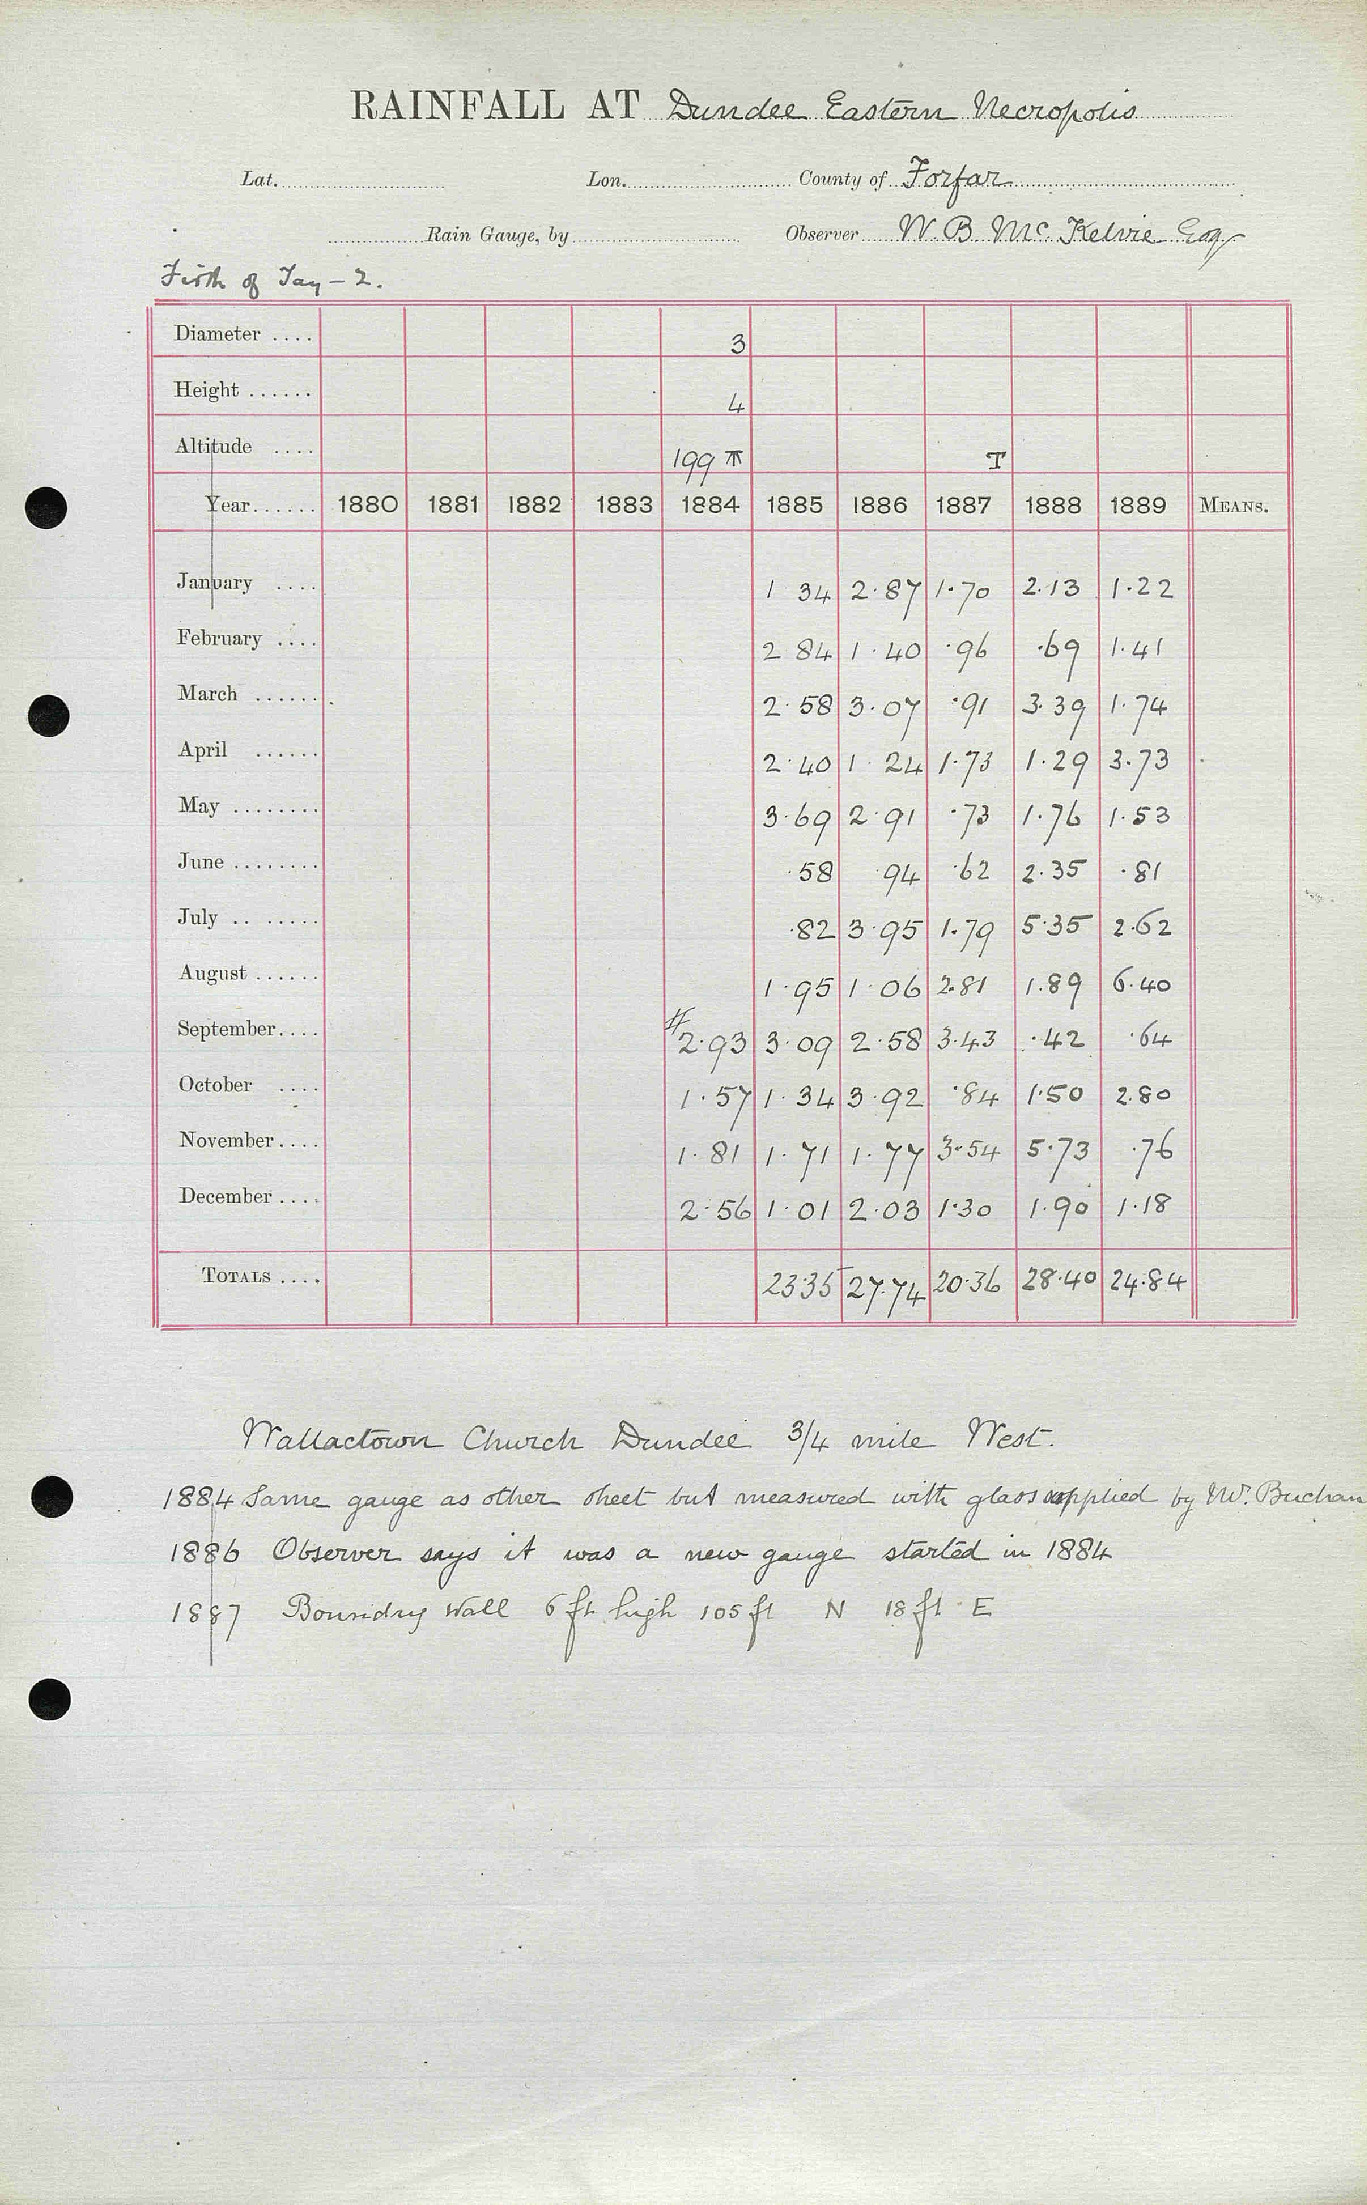 RAINFALL AT Dundee Eastern Necropolis
Lat. Lon. County of Forfar
Rain Gauge, by Observer W. B. Mc. Kelvie Esq
Firth of Tay - 2.
Diameter .... 3
Height ...... 4
Altitude .... 199 T T
Year...... 1880 1881 1882 1883 1884 1885 1886 1887 1888 1889 MEANS.
January .... 1 34 2.87 1.70 2.13 1.22
February .... 2 84 1.40 .96 .69 1.41
March ...... 2.58 3.07 .91 3.39 1.74
April ...... 2.40 1 24 1.73 1.29 3.73
May ........ 3.69 2.91 .73 1.76 1.53
June ........ .58 .94 .62 2.35 .81
July .. ...... .82 3.95 1.79 5.35 2.62
August ...... 1.95 1.06 2.81 1.89 6.40
September.... # 2.93 3.09 2.58 3.43 .42 .64
October .... 1.57 1.34 3.92 .84 1.50 2.80
November.... 1.81 1.71 1.77 3.54 5.73 .76
December .... 2.56 1.01 2.03 1.30 1.90 1.18
TOTALS .... 23.35 27.74 20.36 28.40 24.84
Wallactown Church Dundee 3/4 mile West.
1884 Same gauge as other sheet but measured with glass supplied by Mr. Buchan
1886 Observer says it was a new gauge started in 1884
1887 Boundry Wall 6 ft high 105 ft N 18 ft E